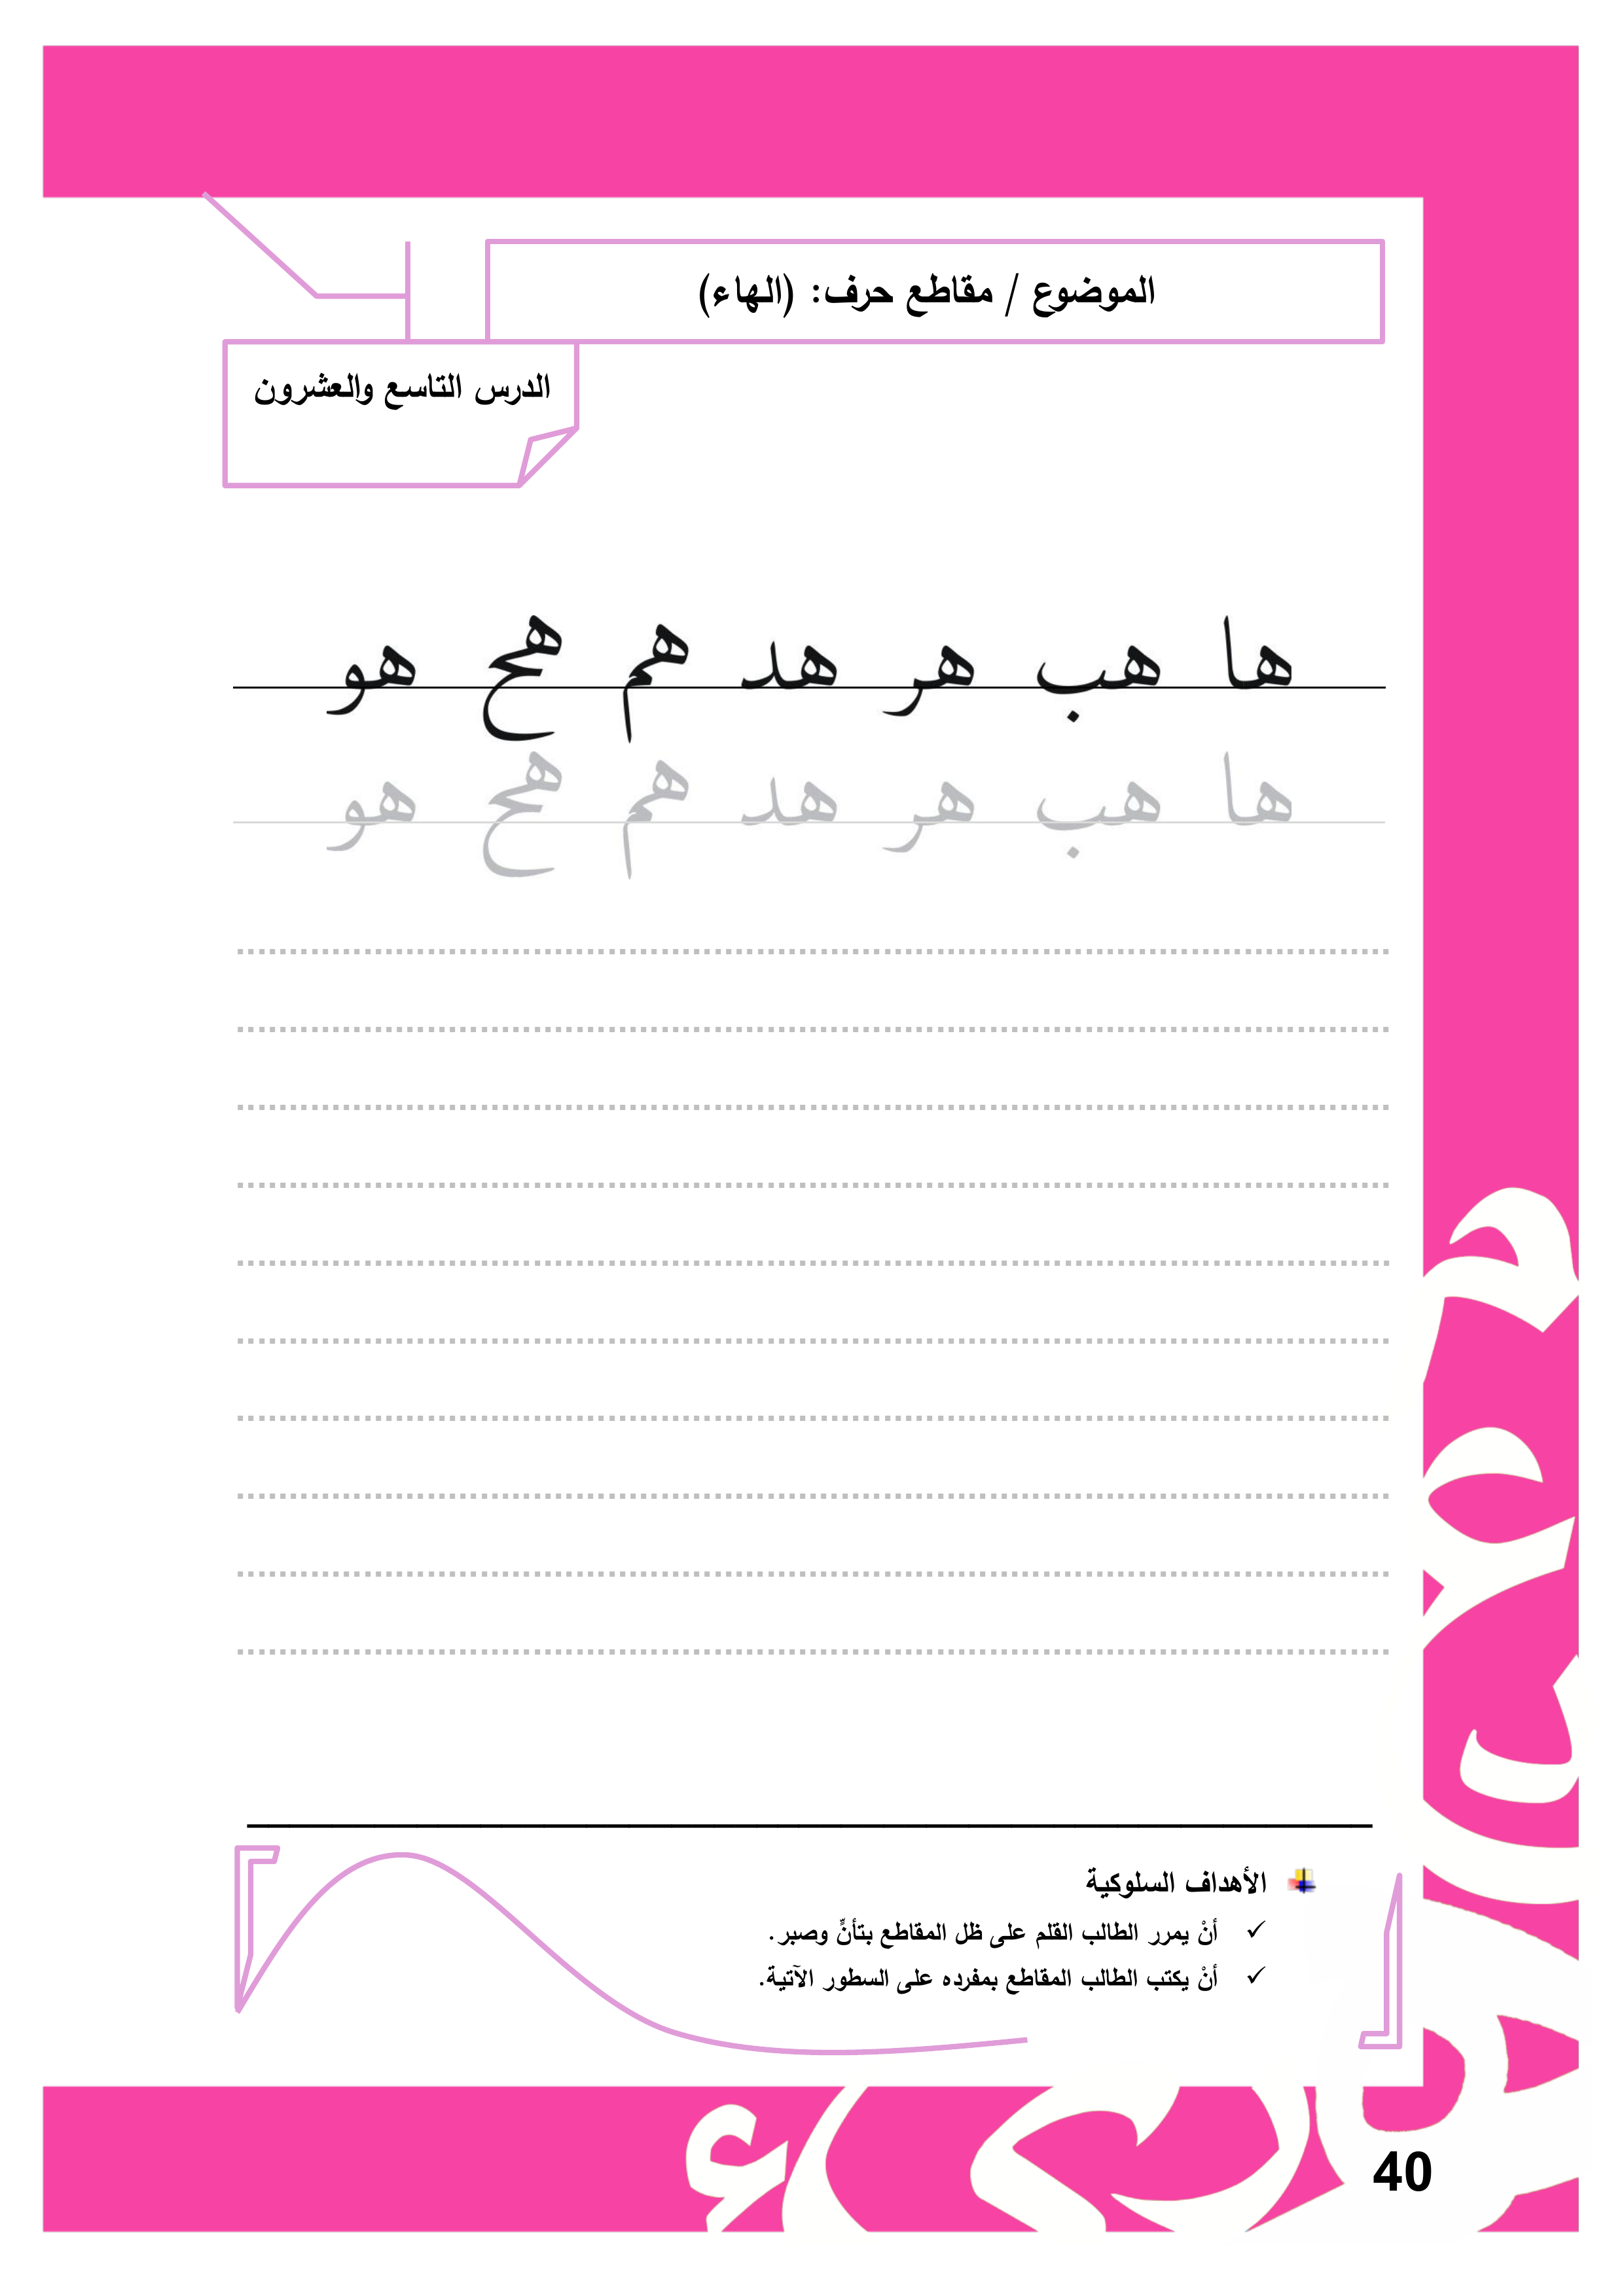 الموضوع / مقاطع حرف: (الهاء)
الدرس التاسع والعشرون
ها هب هر هد هم هح هو
ها هب هر هد هم هح هو
الأهداف السلوكية
✓ أنْ يمرر الطالب القلم على ظل المقاطع بتأنٍّ وصبر.
✓ أنْ يكتب الطالب المقاطع بمفرده على السطور الآتية.
40